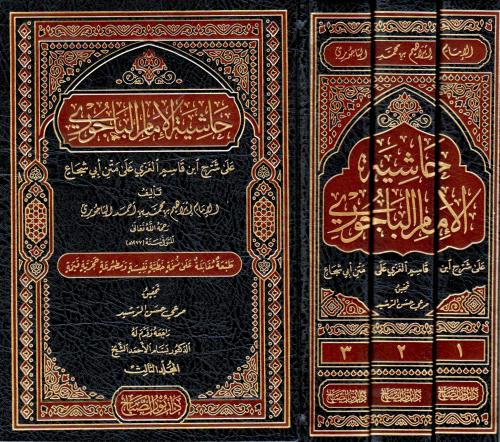 حاشية الإمام الباجوري
على شرح ابن قاسم الغزي على متن أبي شجاع
تأليف
الإمام إبراهيم بن محمد بن أحمد الباجوري
رحمه الله تعالى
طبعة مقابلة على نسخة خطية نفيسة ومطبوعة حجرية قيمة
تحقيق
مرعي حسن الرشيد
راجعه وقدم له
الدكتور بسام الأحمد الشيخ
المجلد الثالث
دار نور الصباح
الإمام إبراهيم بن محمد الباجوري
حاشية
الإمام الباجوري
على شرح ابن قاسم الغزي على متن أبي شجاع
تحقيق
مرعي حسن الرشيد
١ ٢ ٣
دار نور الصباح دار نور الصباح دار نور الصباح